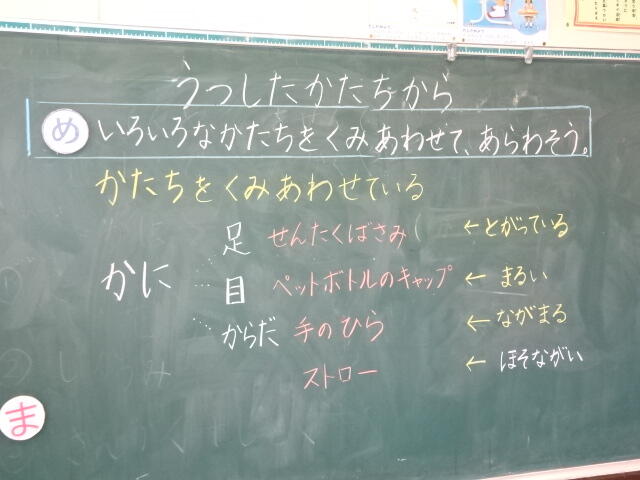 うつしたかたちから
め いろいろなかたちをくみあわせて、あらわそう。
かたちをくみあわせている
かに … 足 せんたくばさみ ←とがっている
… 目 ペットボトルのキャップ ← まるい
… からだ 手のひら ← ながまる
ストロー ← ほそながい
ま